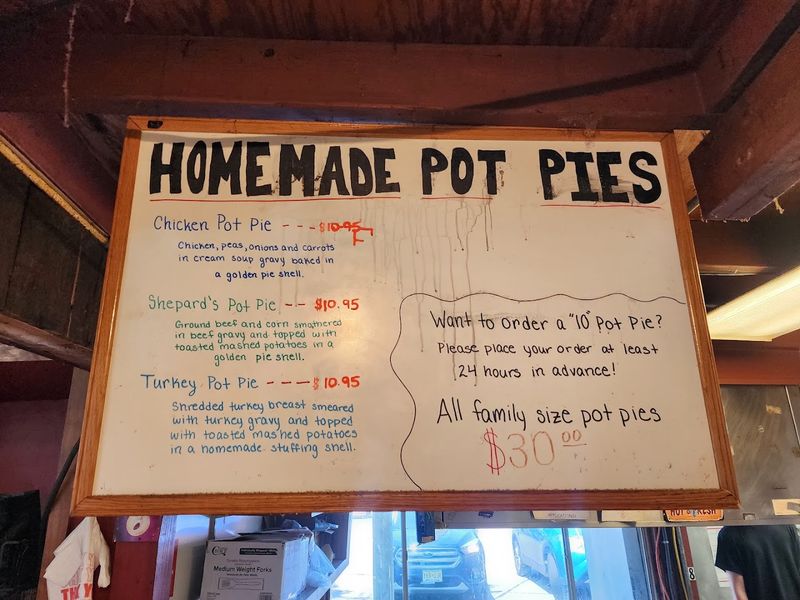 HOMEMADE POT PIES
Chicken Pot Pie ---$10.95
Chicken, peas, onions and carrots
in cream soup gravy baked in
a golden pie shell.
Shepard's Pot Pie -- $10.95
Ground beef and corn smothered
in beef gravy and topped with
toasted mashed potatoes in a
golden pie shell.
Turkey Pot Pie ---- $10.95
Shredded turkey breast smeared
with turkey gravy and topped
with toasted mashed potatoes
in a homemade stuffing shell.
Want to order a "10" Pot Pie?
Please place your order at least
24 hours in advance!
All family size pot pies
$30.00
Medium Weight Forks
HOT & FRESH
TH
8